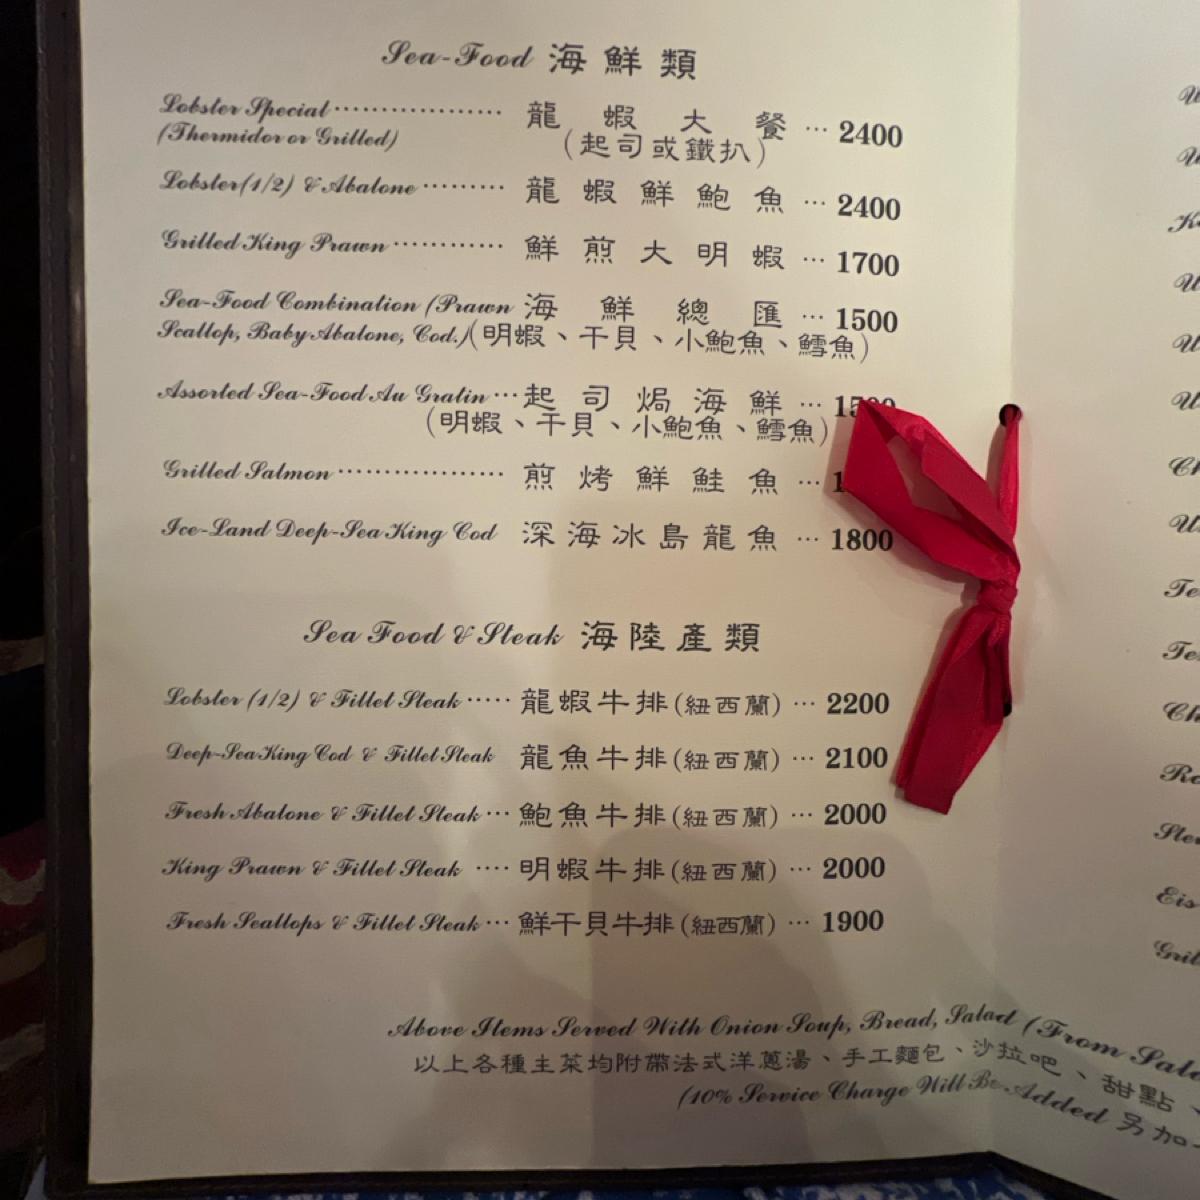 Sea-Food 海鮮類
Lobster Special .................. 龍蝦大餐 ... 2400
(Thermidor or Grilled) (起司或鐵扒)
Lobster(1/2) & Abalone ......... 龍蝦鮮鮑魚 ... 2400
Grilled King Prawn ............ 鮮煎大明蝦 ... 1700
Sea-Food Combination (Prawn 海鮮總匯 ... 1500
Scallop, Baby Abalone, Cod.) (明蝦、干貝、小鮑魚、鱈魚)
Assorted Sea-Food Au Gratin ... 起司焗海鮮 ...
(明蝦、干貝、小鮑魚、鱈魚)
Grilled Salmon .................. 煎烤鮮鮭魚 ...
Ice-Land Deep-Sea King Cod 深海冰島龍魚 ... 1800
Sea Food & Steak 海陸產類
Lobster (1/2) & Fillet Steak ..... 龍蝦牛排(紐西蘭) ... 2200
Deep-Sea King Cod & Fillet Steak 龍魚牛排(紐西蘭) ... 2100
Fresh Abalone & Fillet Steak ... 鮑魚牛排(紐西蘭) ... 2000
King Prawn & Fillet Steak .... 明蝦牛排(紐西蘭) ... 2000
Fresh Scallops & Fillet Steak ... 鮮干貝牛排(紐西蘭) ... 1900
Above Items Served With Onion Soup, Bread, Salad (From
以上各種主菜均附帶法式洋蔥湯、手工麵包、沙拉吧、甜點、
(10% Service Charge Will Be Added 另加